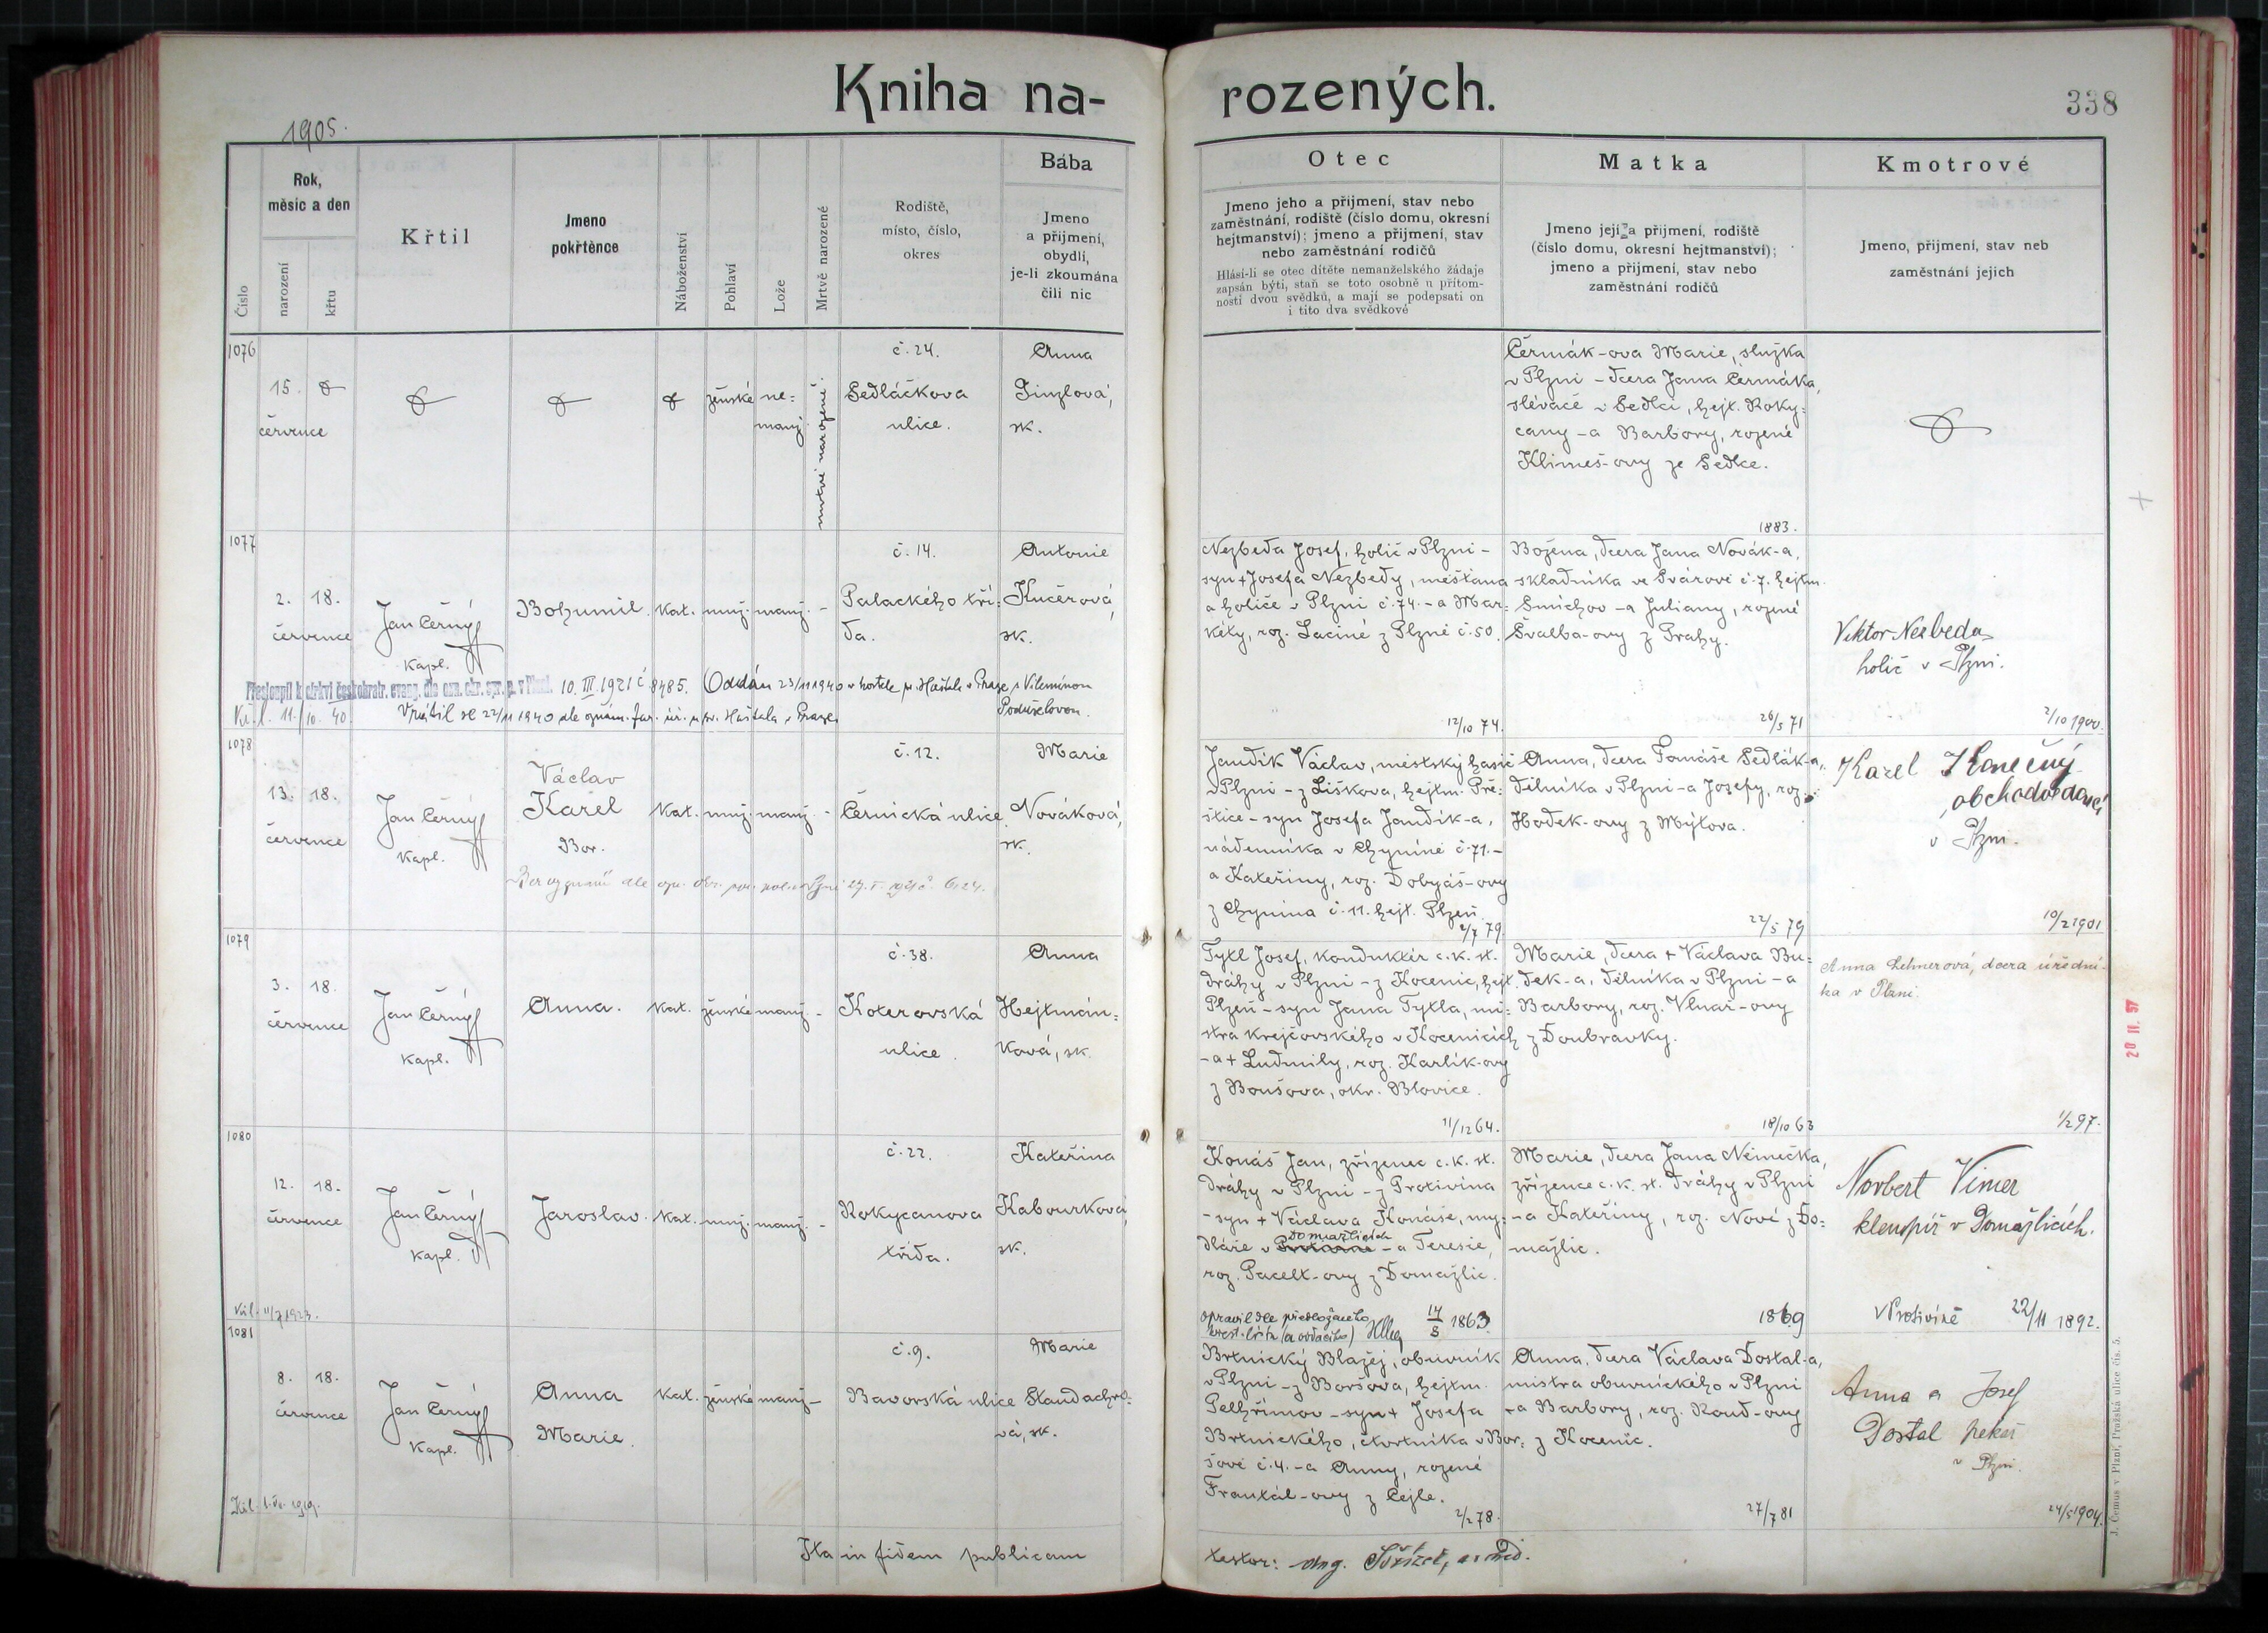 Kniha na-
rozených.
338
1905.
Číslo
Rok,
měsíc a den
narození
křtu
Křtil
Jmeno
pokřtěnce
Náboženství
Pohlaví
Lože
Mrtvě narozené
Rodiště,
místo, číslo,
okres
Bába
Jmeno
a přijmení,
obydlí,
je-li zkoumána
čili nic
Otec
Jmeno jeho a přijmení, stav nebo
zaměstnání, rodiště (číslo domu, okresní
hejtmanství); jmeno a přijmení, stav
nebo zaměstnání rodičů
Hlásí-li se otec dítěte nemanželského žádaje
zapsán býti, staň se toto osobně u přítom-
nosti dvou svědků, a mají se podepsati on
i tito dva svědkové
Matka
Jmeno její a přijmení, rodiště
(číslo domu, okresní hejtmanství);
jmeno a přijmení, stav nebo
zaměstnání rodičů
Kmotrové
Jmeno, přijmení, stav neb
zaměstnání jejich
1076
15.
července
ženské
ne=
manž.
mrtvě narozené.
č. 24.
Sedláčkova
ulice.
Anna
sk.
Čermák-ova Marie, služka
v Plzni - dcera Jana Čermáka,
slévače v Sedlci, hejt. Roky=
cany - a Barbory, rozené
Klimeš-ovy ze Sedlce.
1883.
1077
2. 18.
července
Jan Černý
kapl.
Bohumil.
kat. muž. manž. -
č. 14.
Palackého tří=
da.
Antonie
Kučerová,
sk.
Nezbeda Josef, holič v Plzni -
syn + Josefa Nezbedy, měšťana
a holiče v Plzni č. 74. - a Mar=
kéty, roz. Laciné z Plzně č. 50.
12/10 74.
Božena, dcera Jana Novák-a,
skladníka ve Svárově č. 7. hejtm.
Smíchov - a Juliany, rozené
Švalba-ovy z Prahy.
26/5 71
Viktor Nezbeda
holič v Plzni.
2/10 1900.
Přestoupil k církvi českobratr. evang. dle ozn. okr. spr. p. v Plzni. 10. III. 1921 č. 8485. Oddán 23/11 1940 v kostele sv. Haštala v Praze s Vilemínou
Poduškovou.
Vrátil se 22/11 1940 dle oznám. far. úř. u sv. Haštala v Praze.
1078
13. 18.
července
Jan Černý
kapl.
Václav
Karel
Bor.
kat. muž. manž. -
č. 12.
Černická ulice
Marie
Nováková,
sk.
Jandík Václav, městský hasič
v Plzni - z Liškova, hejtm. Pře=
štice - syn Josefa Jandík-a,
nádenníka v Chyníně č. 71. -
a Kateřiny, roz. Dobyáš-ovy
z Chynína č. 11. hejt. Plzeň.
2/7 79.
Anna, dcera Tomáše Sedlák-a,
dělníka v Plzni - a Josefy, roz.
Hodek-ovy z Mýtova.
22/5 79
Karel Konečný
obchodvedoucí
v Plzni.
10/2 1901
1079
3. 18.
července
Jan Černý
kapl.
Anna.
kat. ženské manž. -
č. 38.
Koterovská
ulice.
Anna
Hejtmán=
ková, sk.
Tytl Josef, konduktér c. k. st.
dráhy v Plzni - z Kocenic, hejt.
Plzeň - syn Jana Tytla, mi=
stra krejčovského v Kocenicích
- a + Ludmily, roz. Karlík-ovy
z Boušova, okr. Blovice.
11/12 64.
Marie, dcera + Václava Bu=
dek-a, dělníka v Plzni - a
Barbory, roz. Vlnař-ovy
z Doubravky.
18/10 63
Anna Lehnerová, dcera úřední-
ka v Plzni.
1/2 97.
20 II. 97
1080
12. 18.
července
Jan Černý
kapl.
Jaroslav.
kat. muž. manž. -
č. 22.
Rokycanova
třída.
Kateřina
Kabourková,
sk.
Konáš Jan, zřízenec c. k. st.
dráhy v Plzni - z Protivína
- syn + Václava Konáše, my=
dláře v Domažlicích - a Teresie,
roz. Pacelt-ovy z Domažlic.
opravil dle předloženého
křest. listu (a oddacího)
14/8 1863
Marie, dcera Jana Němečka,
zřízence c. k. st. dráhy v Plzni
- a Kateřiny, roz. Nové z Do=
mažlic.
1869
Norbert Vimer
klempíř v Domažlicích.
v Protivíně 22/11 1892.
1081
8. 18.
července
Jan Černý
kapl.
Anna
Marie.
kat. ženské manž. -
č. 9.
Bavorská ulice
Marie
Standachro=
vá, sk.
Brtnický Blažej, obuvník
v Plzni - z Boršova, hejtm.
Pelhřimov - syn + Josefa
Brtnického, čtvrtníka v Bor=
šově č. 4. - a Anny, rozené
Frantál-ovy z Cejle.
2/2 78.
Anna, dcera Václava Dostal-a,
mistra obuvnického v Plzni
- a Barbory, roz. Roud-ovy
z Kocenic.
27/7 81
Anna a Josef
Dostal pekař
v Plzni.
24/5 1904.
Ita in fidem publicam
testor:
J. Černus v Plzni, Pražská ulice čís. 5.